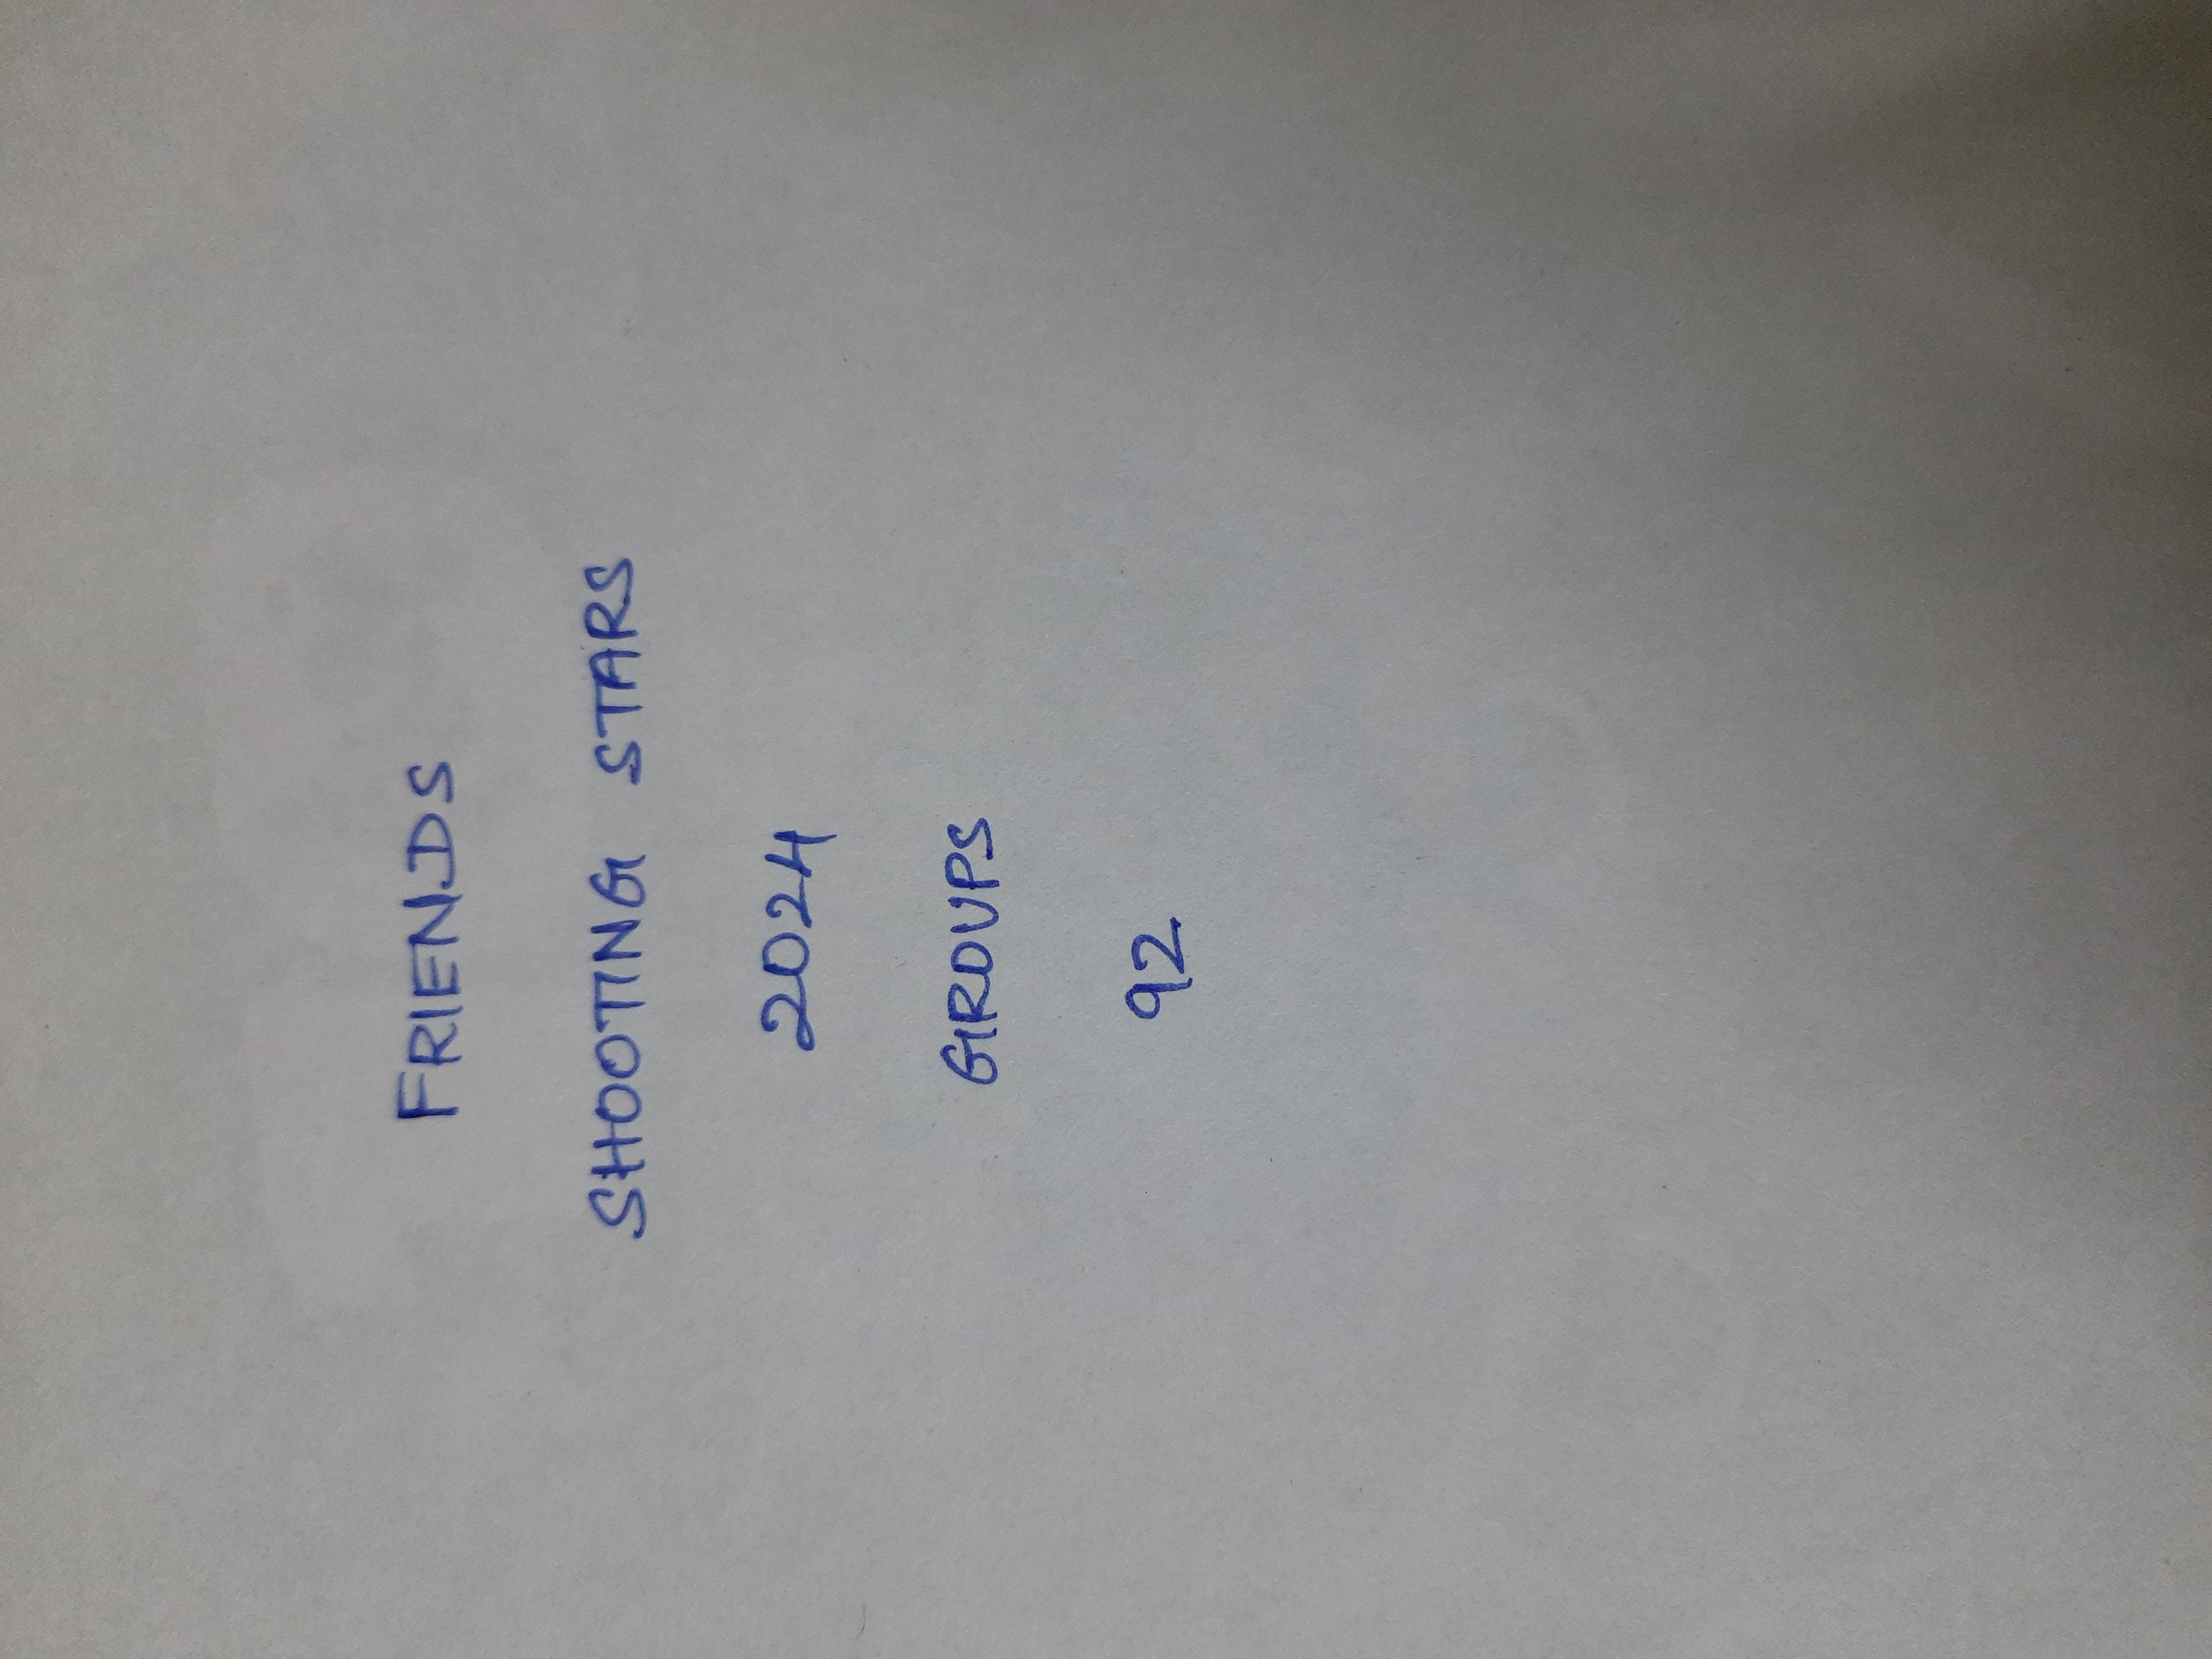 FRIENDS
SHOOTING STARS
2024
GROUPS
92